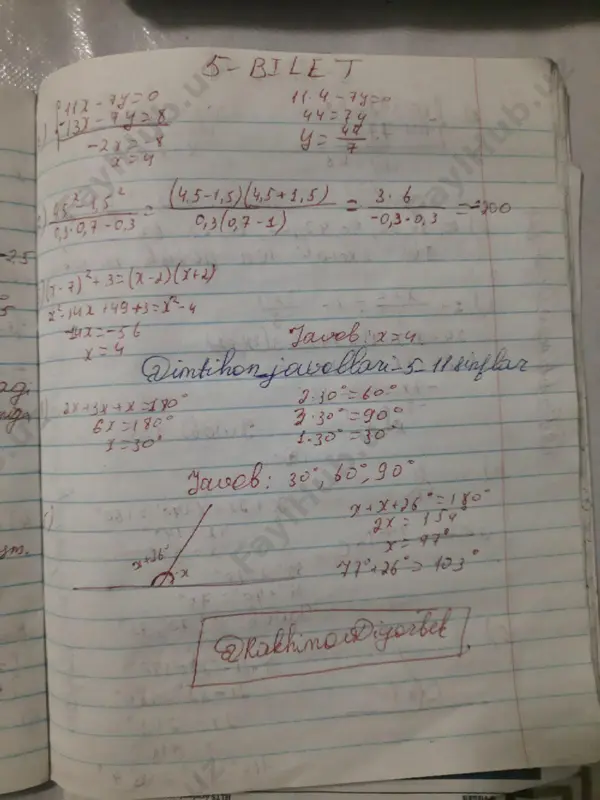 5-BILET
11x-7y=0
-13x-7y=8
-2x=-8
x=4
11·4-7y=0
44=7y
y=44/7
4,5²-1,5²/0,3·0,7-0,3=(4,5-1,5)(4,5+1,5)/0,3(0,7-1)=3·6/-0,3·0,3=-200
(x-7)²+3=(x-2)(x+2)
x²-14x+49+3=x²-4
-14x=-56
x=4
Javob: x=4
@imtihon_javoblari-5-11sinflar
2x+3x+x=180°
6x=180°
x=30°
2·30°=60°
3·30°=90°
1·30°=30°
Javob: 30°, 60°, 90°
x+26°
x
x+x+26°=180°
2x=154°
x=77°
77°+26°=103°
@RakhimovDiyorbek
FaylHub.uz